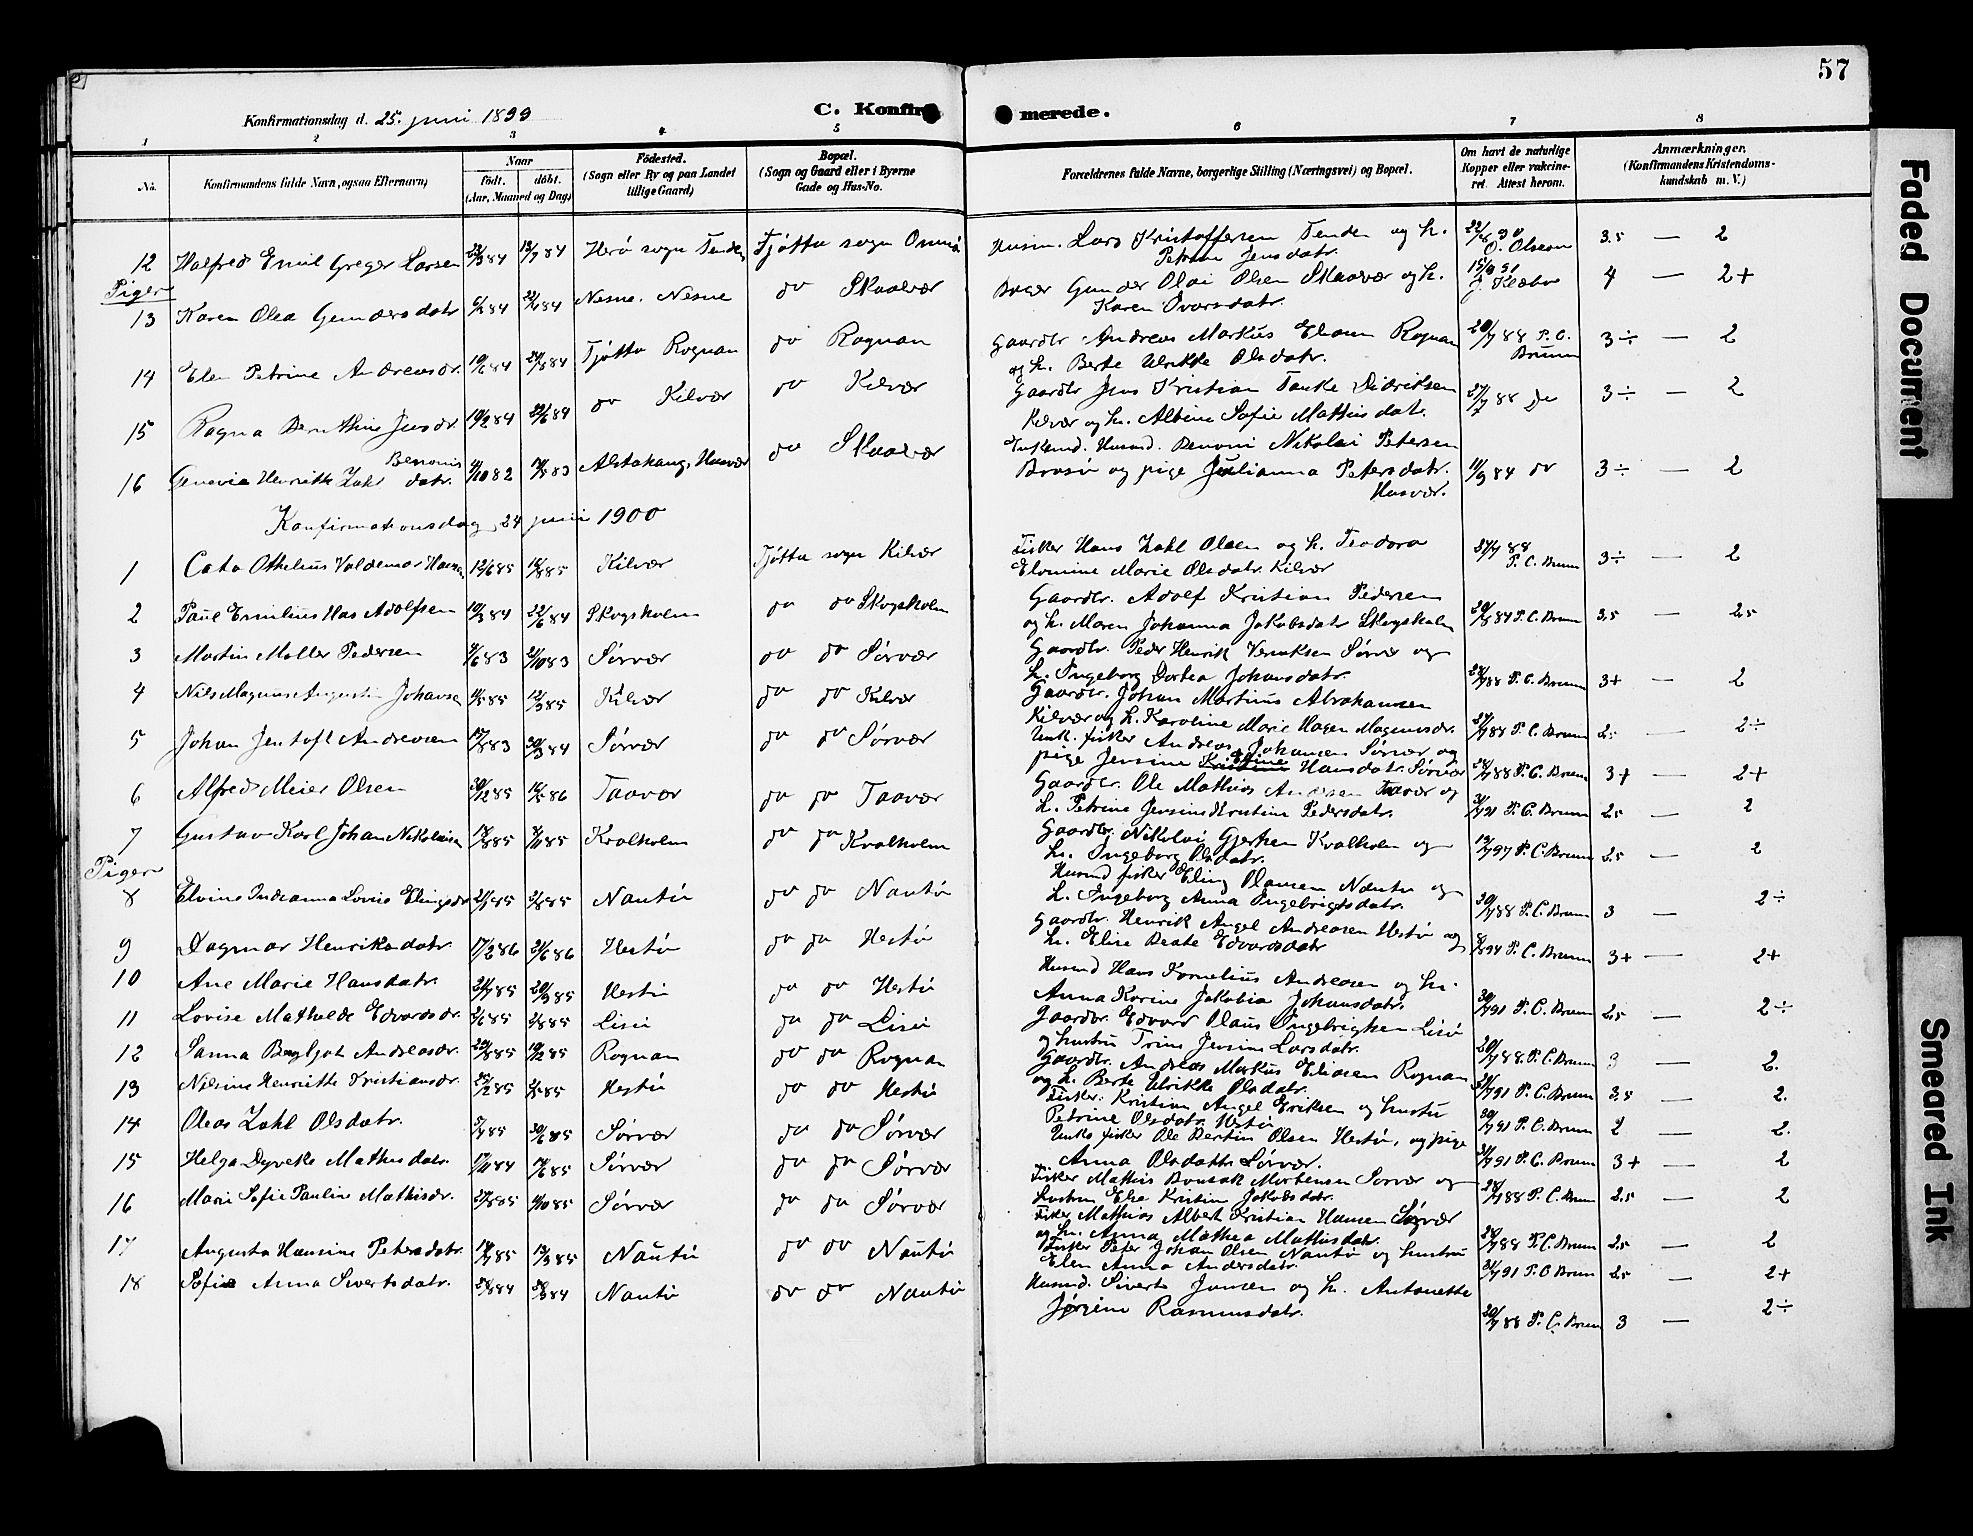 57
Konfirmationsdag d. 25. juni 1899
C. Konfir merede.
1 2 3 4 5 6 7 8
No.
Konfirmandens fulde Navn, ogsaa Efternavn)
Naar
födt. döbt.
(Aar, Maaned og Dag)
Födested.
(Sogn eller By og paa Landet
tillige Gaard)
Bopæl.
(Sogn og Gaard eller i Byerne
Gade og Hus-No.
Forældrenes fulde Navne, borgerlige Stilling (Næringsvei) og Bopæl.
Om havt de naturlige
Kopper eller vakcine-
ret. Attest herom.
Anmærkninger.
(Konfirmandens Kristendoms-
kundskab m. V.)
12 Halfred Emil Greger Larsen 23/3 84 13/7 84 Herö sogn Tenden Tjötta sogn
Husm. Lars Kristoffersen Tenden og h.
Petrine Jensdatr. O. Olsen 3.5 — 2
Piger
13 Karen Olea Gundersdatr 84 84 Nesna. Nesna do Skaalvær
Gunder Olai Olsen Skaalvær og h.
Karen Ivarsdatr. J. Klæbo 4 — 2+
14 Elen Petrine Andreasdr. 84 84 Tjötta Rognan do Rognan
Gaardbr Andreas Markus Eliasen Rognan
og h. Berte Ulrikke Olsdatr. 20/7 88 P. C. Bruun 3÷ — 2
15 Ragna Bernthine Jensdr. 19/2 84 22/6 84 do Kilvær do Kilvær
Gaardbr Jens Kristian Tanke Didriksen
Kilvær og h. Albine Sofie Mathisdat. 27/7 88 Do 3÷ — 2
16 Genevie Henritte Zahl Benonis datr. 10 82 83 Alstahaug, Husvær do Skaalvær
Enkemd. Husmd. Benoni Nikolai Petersen
Brasö og pige Julianna Petersdatr.
Husvær. 11/9 84 do 3÷ — 2
Konfirmationsdag 24 juni 1900
1 Cato Othelius Valdemar Hansen 12/6 85 16/8 85 Kilvær Tjötta sogn Kilvær
Fisker Hans Zahl Olsen og h. Teodora
Elomine Marie Olsdatr. Kilvær 27/7 88 P. C. Bruun 3÷ — 2
2 Paul Emilius Has Adolfsen 10/3 84 22/6 84 Skogsholm do do Skogsholm
Gaardbr. Adolf Kristian Pedersen
og h. Maren Johanna Jakobsdatr Skogsholm 84 P. C. Bruun 3.5 — 2.5
3 Martin Möller Pedersen 6 83 10 83 Sörvær do do Sörvær
Gaardbr. Peder Henrik Sörvær og
h. Ingeborg Dortea Johansdatr. 88 P. C. Bruun 3+ — 2
4 Nils Magnus Augustin Johansen 85 12/3 85 Kilvær do do Kilvær
Gaardbr. Johan Martinus Abrahamsen
Kilvær og h. Karoline Marie Hagen Magnusdr. 88 P. C. Bruun 2.5 — 2÷
5 Johan Jentoft Andreasen 17/8 83 30/3 84 Sörvær do do Sörvær
Unk. fisker Andreas Johansen Sörvær og
pige Jensine Hansdatr. Sörvær 88 P. C. Bruun 3+ — 2+
6 Alfred Meier Olsen 30/12 85 86 Taavær do do Taavær
Gaardbr. Ole Mathias Andersen Taavær og
h. Petrine Jensine Kristine Pedersdatr. 91 P. C. Bruun 2.5 — 2
7 Gustav Karl Johan Nikolaisen 18/8 85 11 85 Kvalholm do do Kvalholm
Gaardbr. Nikolai Gjertsen Kvalholm og
h. Ingeborg Olsdatr. 97 P. C. Bruun 2.5 — 2
Piger
8 Elvine Indianna Lovise Elingsdr 21/1 85 2/8 85 Nautö do do Nautö
Husmd fisker Eling Olausen Nautö og
h. Ingeborg Anna Ingebrigtsdatr. 20/7 88 P. C. Bruun 3 — 2÷
9 Dagmar Henriksdatr. 17/2 86 21/6 86 Hestö do do Hestö
Gaardbr. Henrik Angel Andreasen Hestö og
h. Elise Beate Edvardsdatr 94 P. C. Bruun 3+ — 2+
10 Ane Marie Hansdatr. 21/7 85 20/9 85 Hestö do do Hestö
Husmd Hans Kornelius Andreasen og h.
Anna Karine Jakobia Johansdatr. 91 P. C. Bruun 2.5 — 2÷
11 Lovise Mathilde Edvardsdr. 6 85 8 85 Lisö do do Lisö
Gaardbr. Edvard Olaus Ingebrigtsen Lisö
og hustru Trine Jensine Larsdatr. 20/7 88 P. C. Bruun 3 — 2.
12 Sanna Bergljot Andreasdr. 85 85 Rognan do do Rognan
Gaardbr. Andreas Markus Eliasen Rognan
og h. Berte Ulrikke Olsdatr. 91 P. C. Bruun 3.5 — 2.
13 Nilsine Henriette Kristiansdr. 85 85 Hestö do do Hestö
Fisker. Kristian Angel Eriksen og hustru
Petrine Olsdatr. Hestö 91 P. C. Bruun 2 — 2.
14 Oleas Zahl Olsdatr. 85 85 Sörvær do do Sörvær
Unks fisker Ole Bertin Olsen Hestö, og pige
Anna Olsdattr Sörvær. 91 P. C. Bruun 3+ — 2
15 Helga Dyveke Mathisdatr. 17/11 84 85 Sörvær do do Sörvær
Fisker Mathis Mortensen Sörvær og
hustru Else Kristine Jakobsdatr. 88 P. C. Bruun 2.5 — 2
16 Marie Sofie Pauline Mathisdr. 85 10 85 Sörvær do do Sörvær
Fisker Mathias Albert Kristian Hansen Sörvær
og h. Anna Mathea Mathisdatr. 88 P. C. Bruun 2.5 — 2
17 Augusta Hansine Petersdatr. 85 85 Nautö do do Nautö
Fisker Peter Johan Olsen Nautö og hustru
Elen Anna Andersdatr. 91 P. C. Bruun 2.5 — 2+
18 Sofie Anna Sivertsdatr. 84 84 Nautö do do Nautö
Husmd. Siverts Jansen og h. Antonette
Jörine Rasmusdatr. 20/7 88 P. C. Bruun 3 — 2÷
Faded Document
Smeared Ink